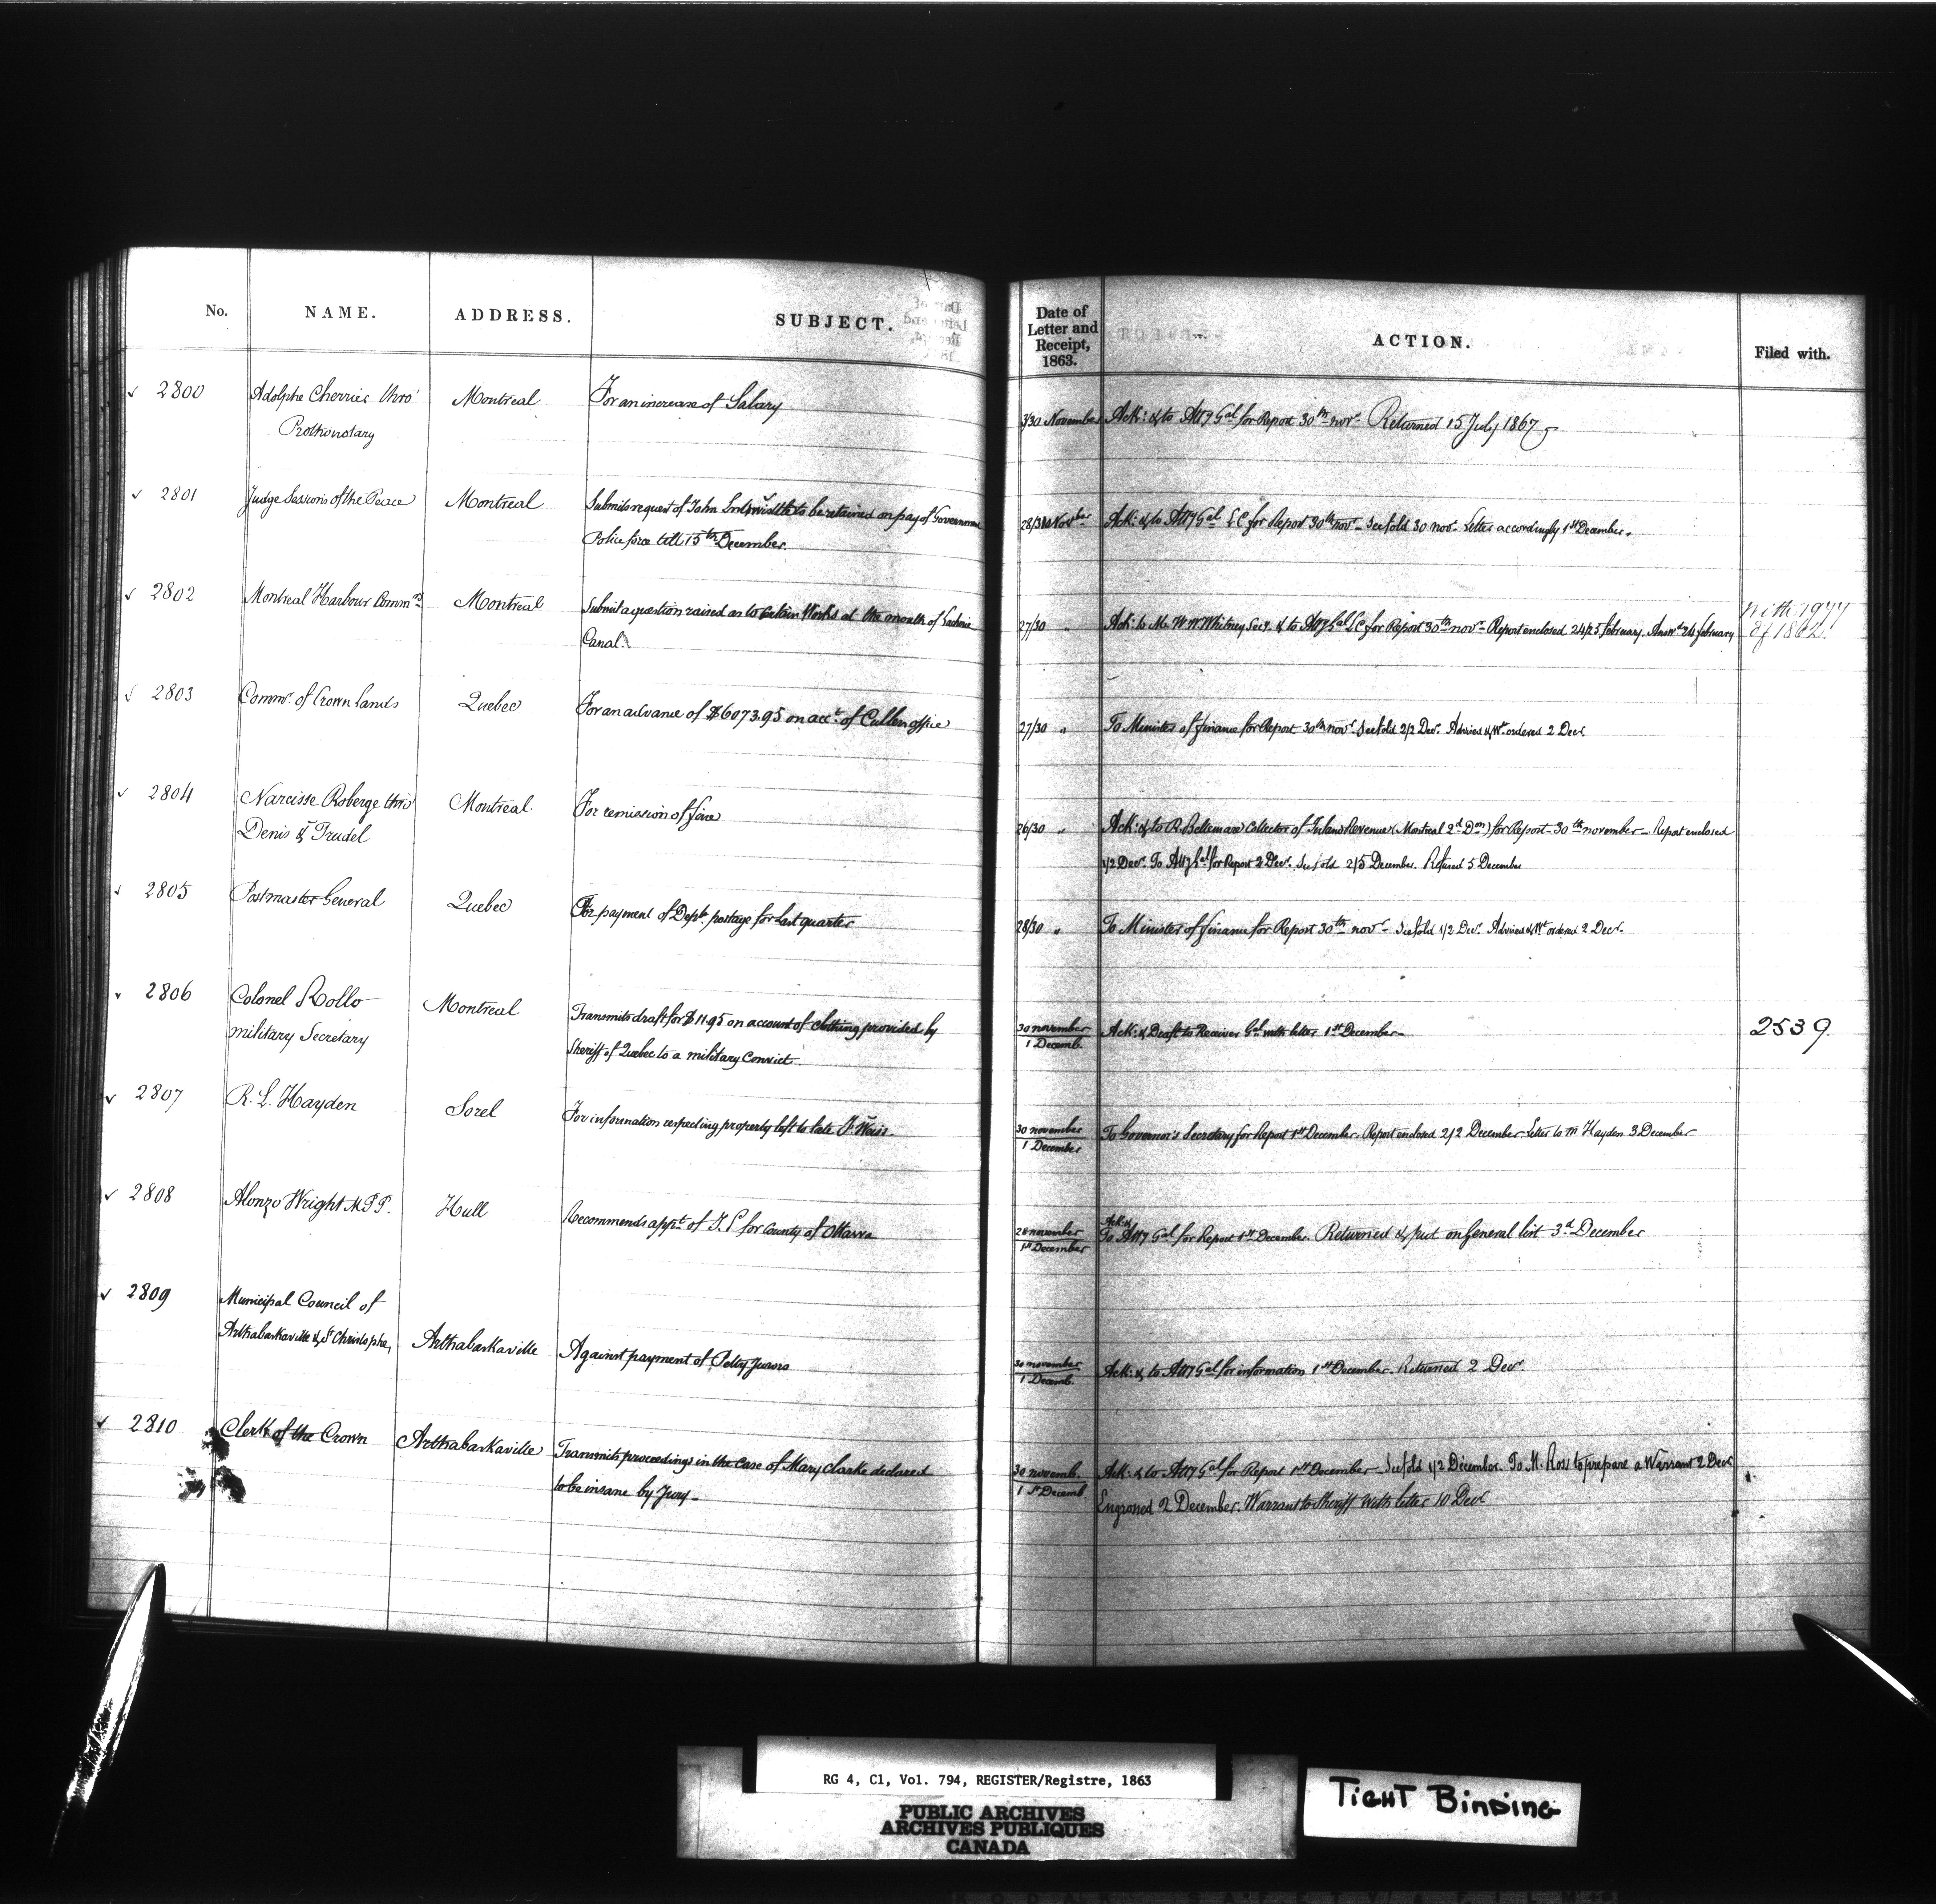 No. NAME. ADDRESS. SUBJECT. Date of Letter and Receipt, 1863. ACTION. Filed with.
2800 Adolphe Cherrier thro' Montreal For an increase of Salary 3/30 November Ack: & to Atty Gal for Report 30th novr Returned 15 July 1867
Prothonotary
2801 Judge Sessions of the Peace Montreal Submits request of John to be retained on pay of Government 28/30 Novber Ack: & to Atty Gal L C for Report 30th novr – See fold 30 novr Letter accordingly 1st December.
Police force till 15th December.
2802 Montreal Harbour Commrs Montreal Submit a question raised as to certain Works at the mouth of Lachine 27/30 " Ack: to Mr W W Whitney Secy. & to Atty Gal L C for Report 30th novr – Report enclosed 24/25 february. Answd 26 february With 1977
Canal. of 1862.
2803 Commr. of Crown Lands Quebec For an advance of $6073.95 on acct. of Cullers office 27/30 " To Minister of finance for Report 30th novr. See fold 2/2 Decr. Advised & Wt ordered 2 Decr
2804 Narcisse Roberge thro' Montreal For remission of fine 26/30 " Ack: & to R. Bellemare Collector of Inland Revenue (Montreal 2d Don) for Report – 30th november – Report enclosed
Denis & Trudel 1/2 Decr. To Atty Gal for Report 2 Decr. See fold 2/5 December. Refused 5 December
2805 Postmaster General Quebec For payment of Deptl. postage for last quarter 28/30 " To Minister of finance for Report 30th novr – See fold 1/2 Decr. Advised & Wt ordered 2 Decr.
2806 Colonel Rollo Montreal Transmits draft for $11.95 on account of clothing provided by 30 november Ack: & Draft to Receiver Gal with letter 1st December – 2539.
military Secretary Sheriff of Quebec to a military Convict. 1 Decemb.
2807 R. L. Hayden Sorel For information respecting property left to late Weiss. 30 november To Governor's Secretary for Report 1st December. Report enclosed 2/2 December – Letter to Mr Hayden 3 December
1 December
2808 Alonzo Wright M.P.P. Hull Recommends appt. of J. P for County of Ottawa 28 november Ack: & To Atty Gal for Report 1st December. Returned & put on General list 3d December
1st December
2809 Municipal Council of
Arthabaskaville & St Christophe, Arthabaskaville Against payment of Petty Jurors 30 november Ack: & to Atty Gal for information 1st December. Returned 2 Decr.
1 Decemb.
2810 Clerk of the Crown Arthabaskaville Transmits proceedings in the case of Mary Clarke declared 30 novemb. Ack: & to Atty Gal for Report 1st December – See fold 1/2 December. To M. Ross to prepare a Warrant 2 Decr
to be insane by Jury – 1st Decemb Engrossed 2 December. Warrant to Sheriff with letter 10 Decr
RG 4, C1, Vol. 794, REGISTER/Registre, 1863
PUBLIC ARCHIVES
ARCHIVES PUBLIQUES
CANADA
TIGHT BINDING